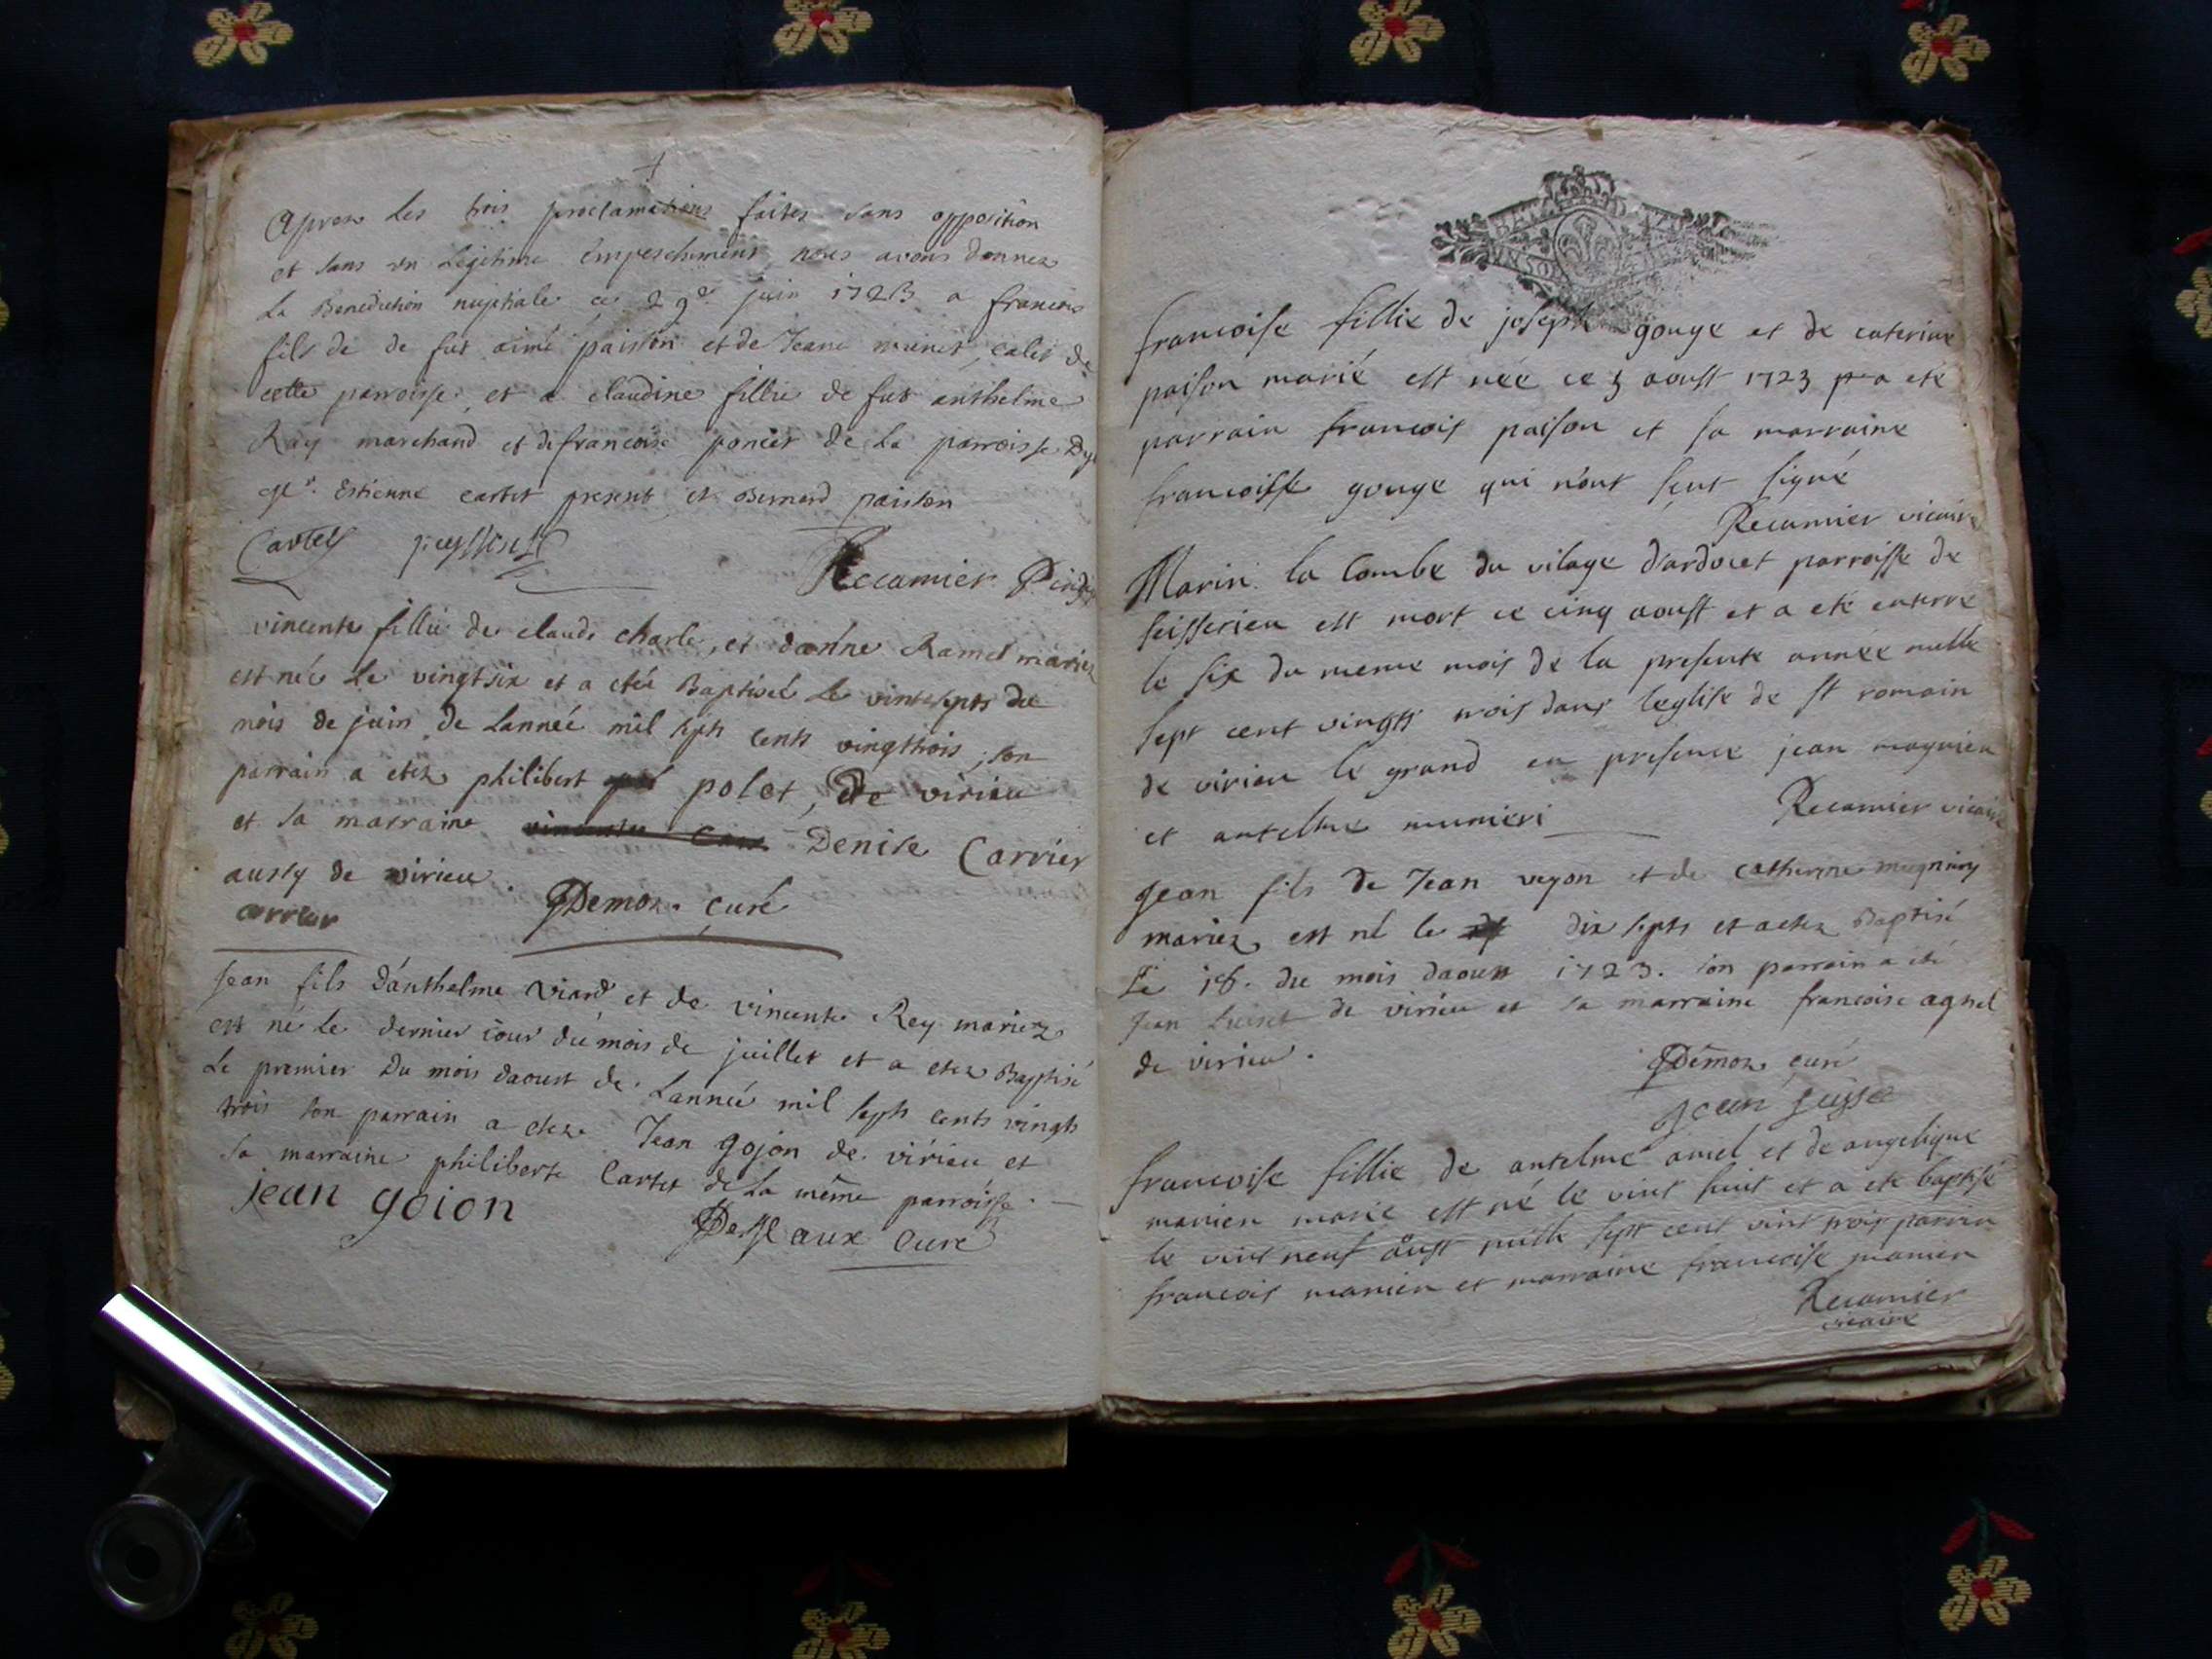 Apres les trois proclamations faites sans opposition
et sans un Legitime Empeschement nous avons donnez
La Benediction nuptiale ce 29e juin 1723 a francois
fils de de fut aimé paisson et de Jeane
cette parroisse, et a claudine fillie de fut anthelme
Ray marchand et de francoise poncet de La parroisse
Estienne cartet present et Bernard paisson
Cartet
Recamier
vincente fillie de claude charle, et Ramel mariez
est née Le vingtsix et a etéé Baptiséé Le vintsepts du
mois de juin de Lannéé mil septs cents vingttrois, son
parrain a etez philibert polet, de virieu
et sa marraine Denise Carrier
aussy de virieu.
carrier Demoz. curé
Jean fils d'anthelme viard et de vincente Rey mariez
est né le dernier jour du mois de juillet et a etez Baptisé
Le premier Du mois daoust de Lannéé mil septs cents vingts
trois son parrain a etez Jean gojon de virieu et
sa marraine philiberte Cartet de La même parroisse.
jean goion
curé
francoise fillie de joseph gouge et de caterine
paison marié est née ce 3 aoust 1723 a eté
parrain francois paison et sa marraine
francoisse gouge qui n'ont seut signé
Recamier vicaire
Marin la Combe du vilage d'ardocet parroisse de
seisserieu est mort ce cinq aoust et a eté enterre
le six du meme mois de la presente année mille
sept cent vingts trois dans leglise de st romain
de virieu le grand en presence jean magnien
et antelme munieri
Recamier vicaire
Jean fils de Jean et de catherine
mariez est né le dix septs et a etez Baptisé
Le 18. du mois daoust 1723. son parrain a eté
Jean de virieu et sa marraine francoise agnel
de virieu.
Demoz curé
jean
francoise fillie de antelme et de angelique
manien marié est né le vint huit et a eté baptisé
le vint neuf aust mille sept cent vint trois parrin
francois manien et marraine francoise manien
Recamier
vicaire